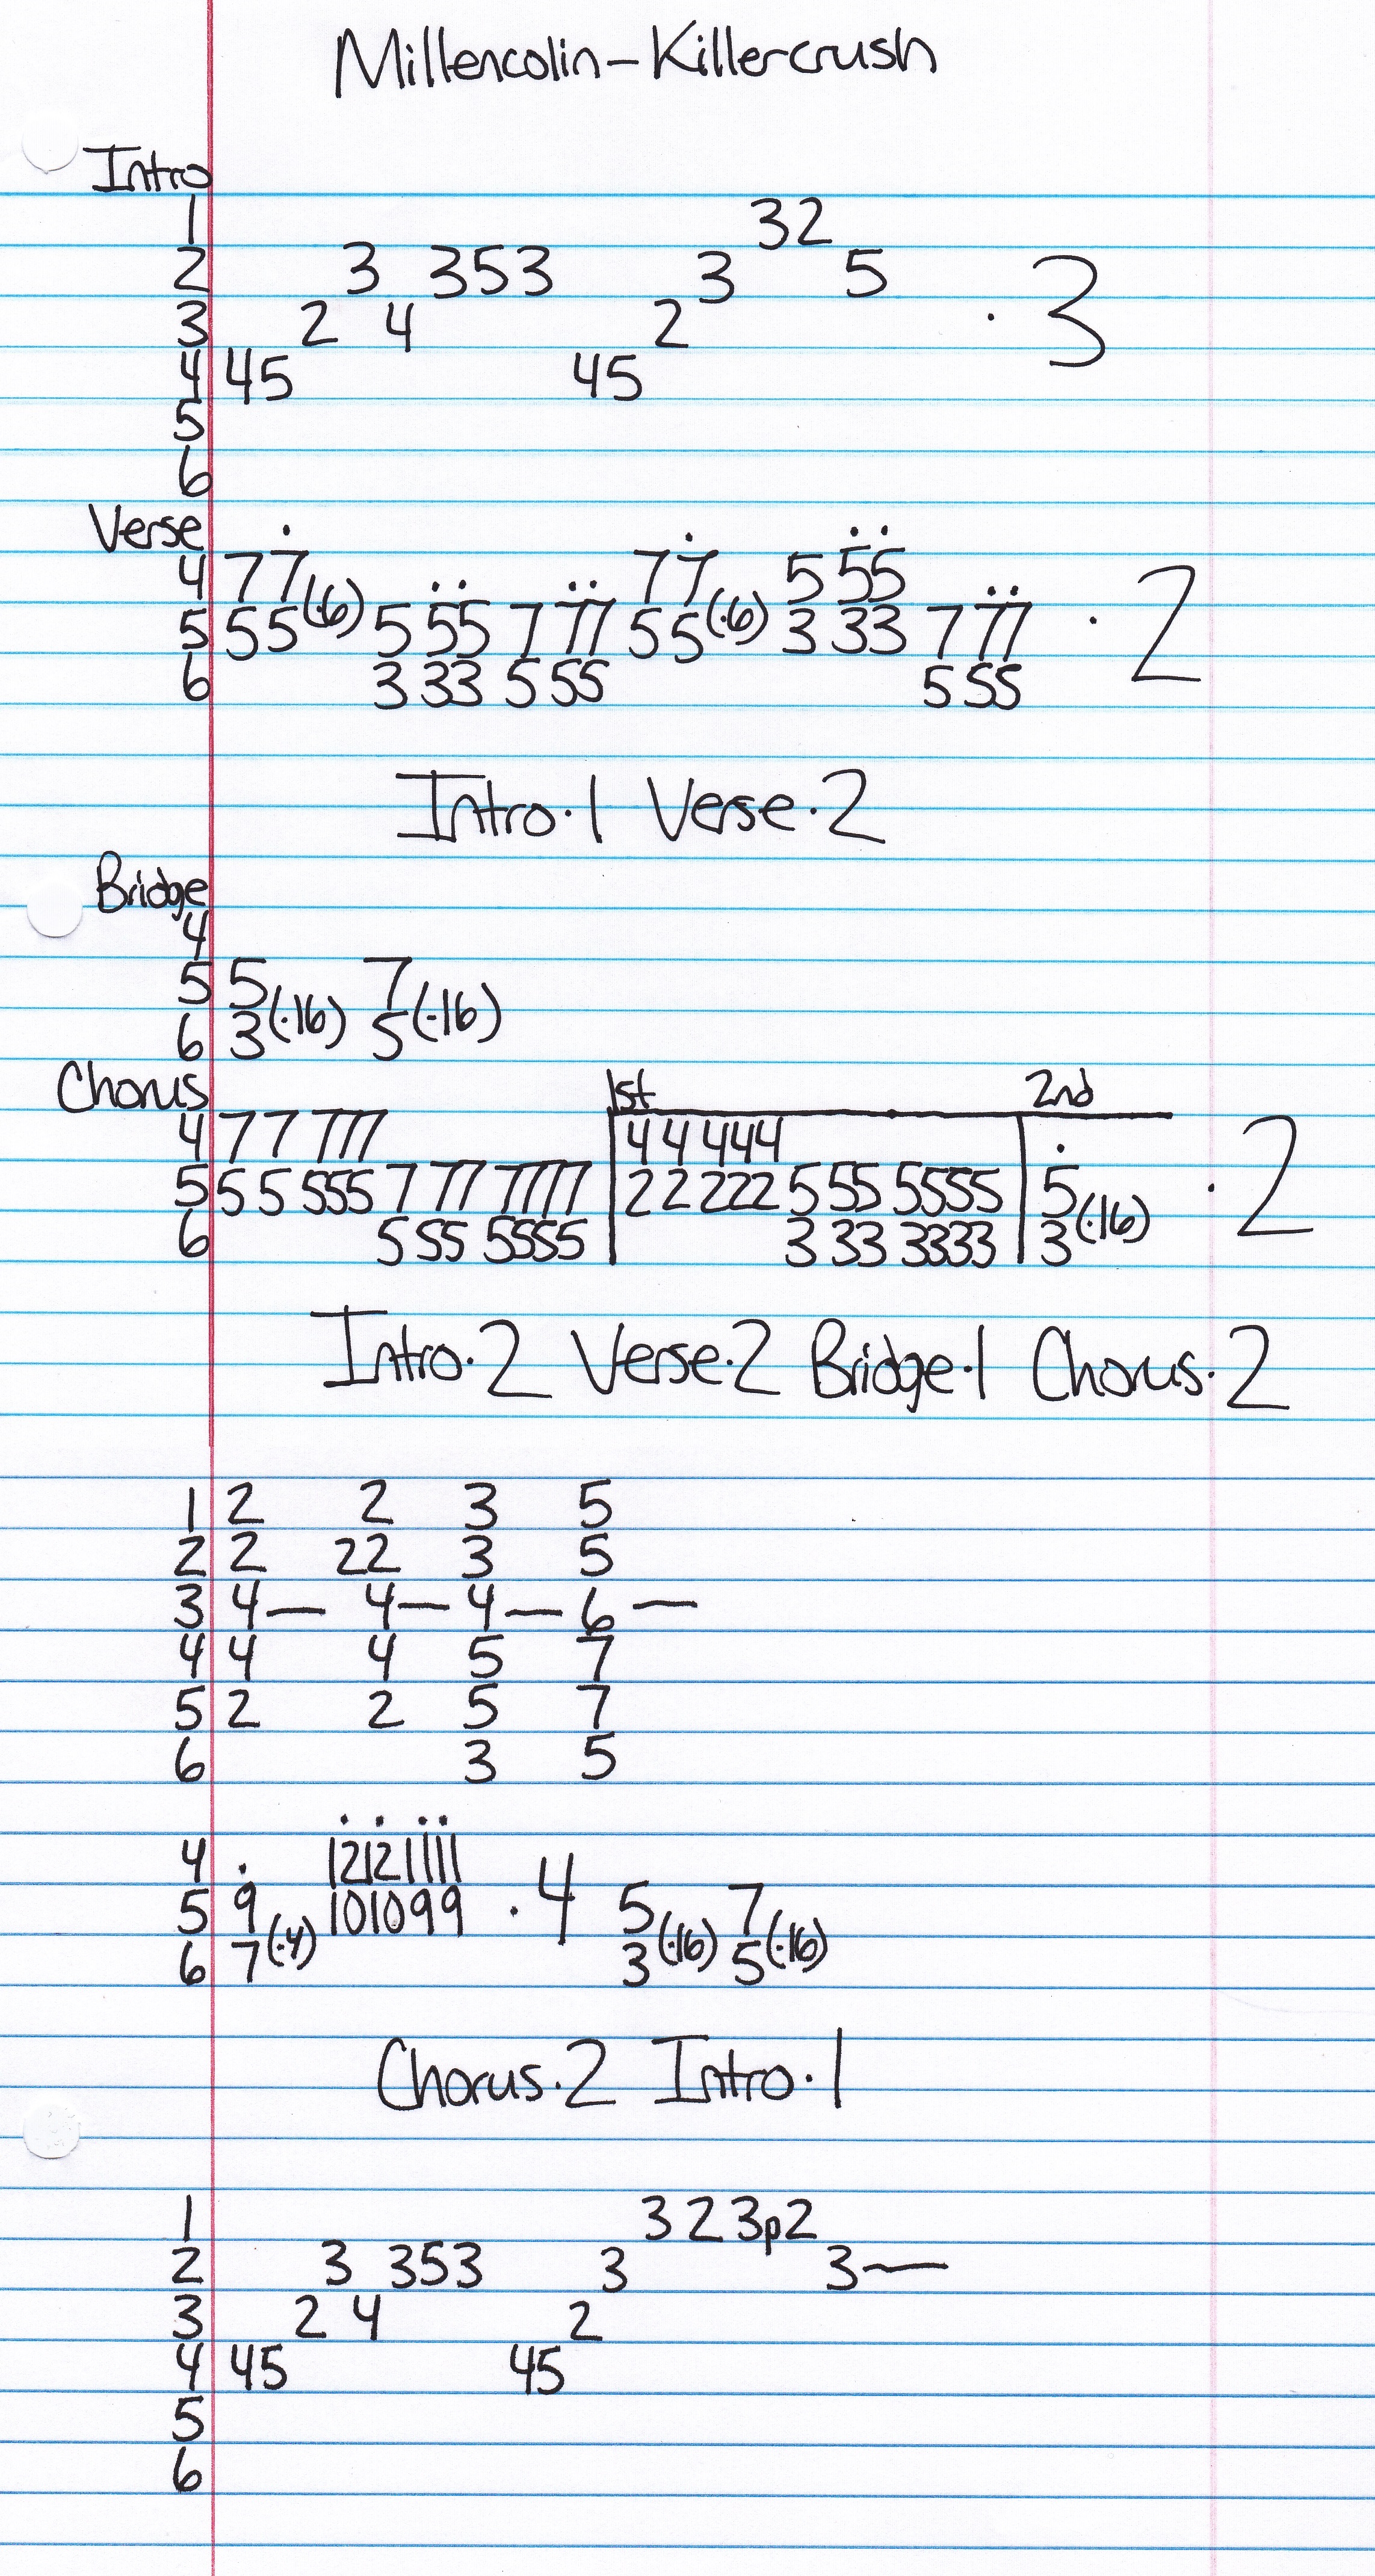 Millencolin-Killercrush
Intro
1 32
2 3 353 3 5
3 2 4 2 · 3
4 45 45
5
6
Verse
4 77 77 5 55
5 55(·6) 5 55 7 77 55(·6) 3 33 7 77 · 2
6 3 33 5 55 5 55
Intro·1 Verse·2
Bridge
4
5 5 7
6 3(·16) 5(·16)
Chorus 1st 2nd
4 7 7 777 4 4 444
5 5 5 555 7 77 7777 2 2 222 5 55 5555 5 · 2
6 5 55 5555 3 33 3333 3(·16)
Intro·2 Verse·2 Bridge·1 Chorus·2
1 2 2 3 5
2 2 22 3 5
3 4— 4— 4— 6 —
4 4 4 5 7
5 2 2 5 7
6 3 5
4 12121111
5 9 101099 · 4 5 7
6 7(·4) 3(·16) 5(·16)
Chorus·2 Intro·1
1 3 2 3p2
2 3 353 3 3—
3 2 4 2
4 45 45
5
6